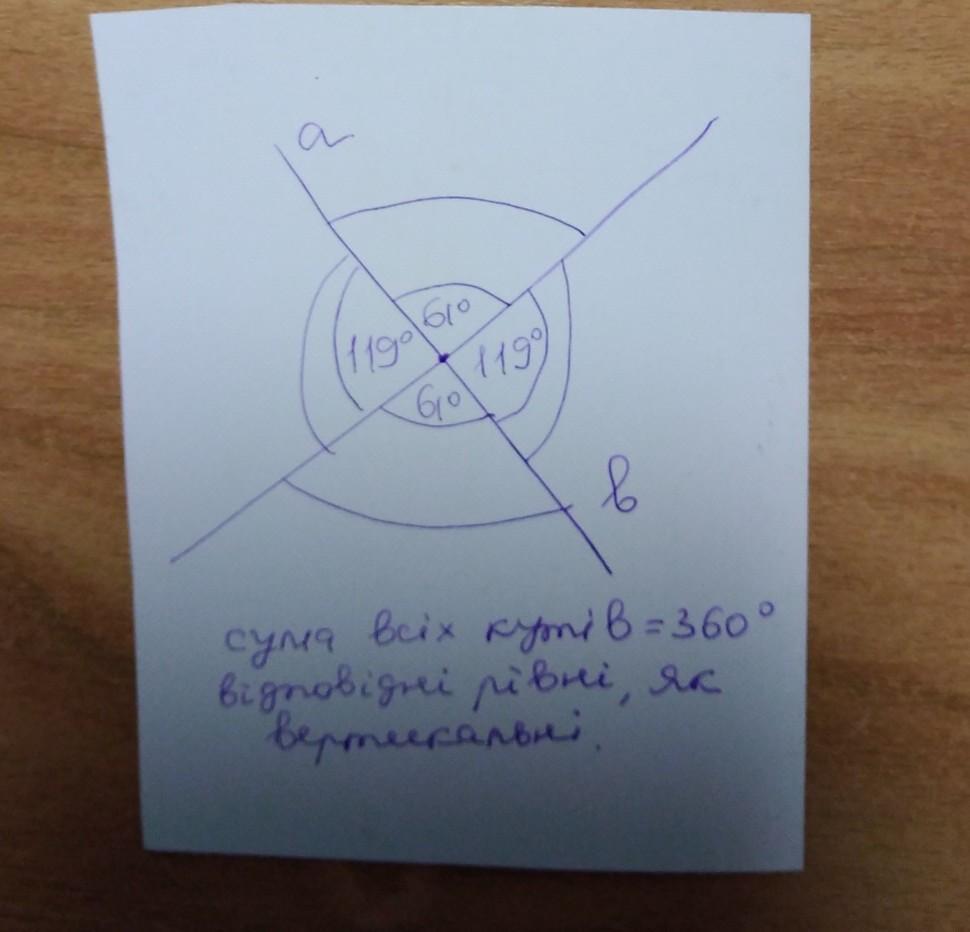 a
61°
119°
119°
61°
b
сума всіх кутів = 360°
відповідні рівні, як
вертикальні.